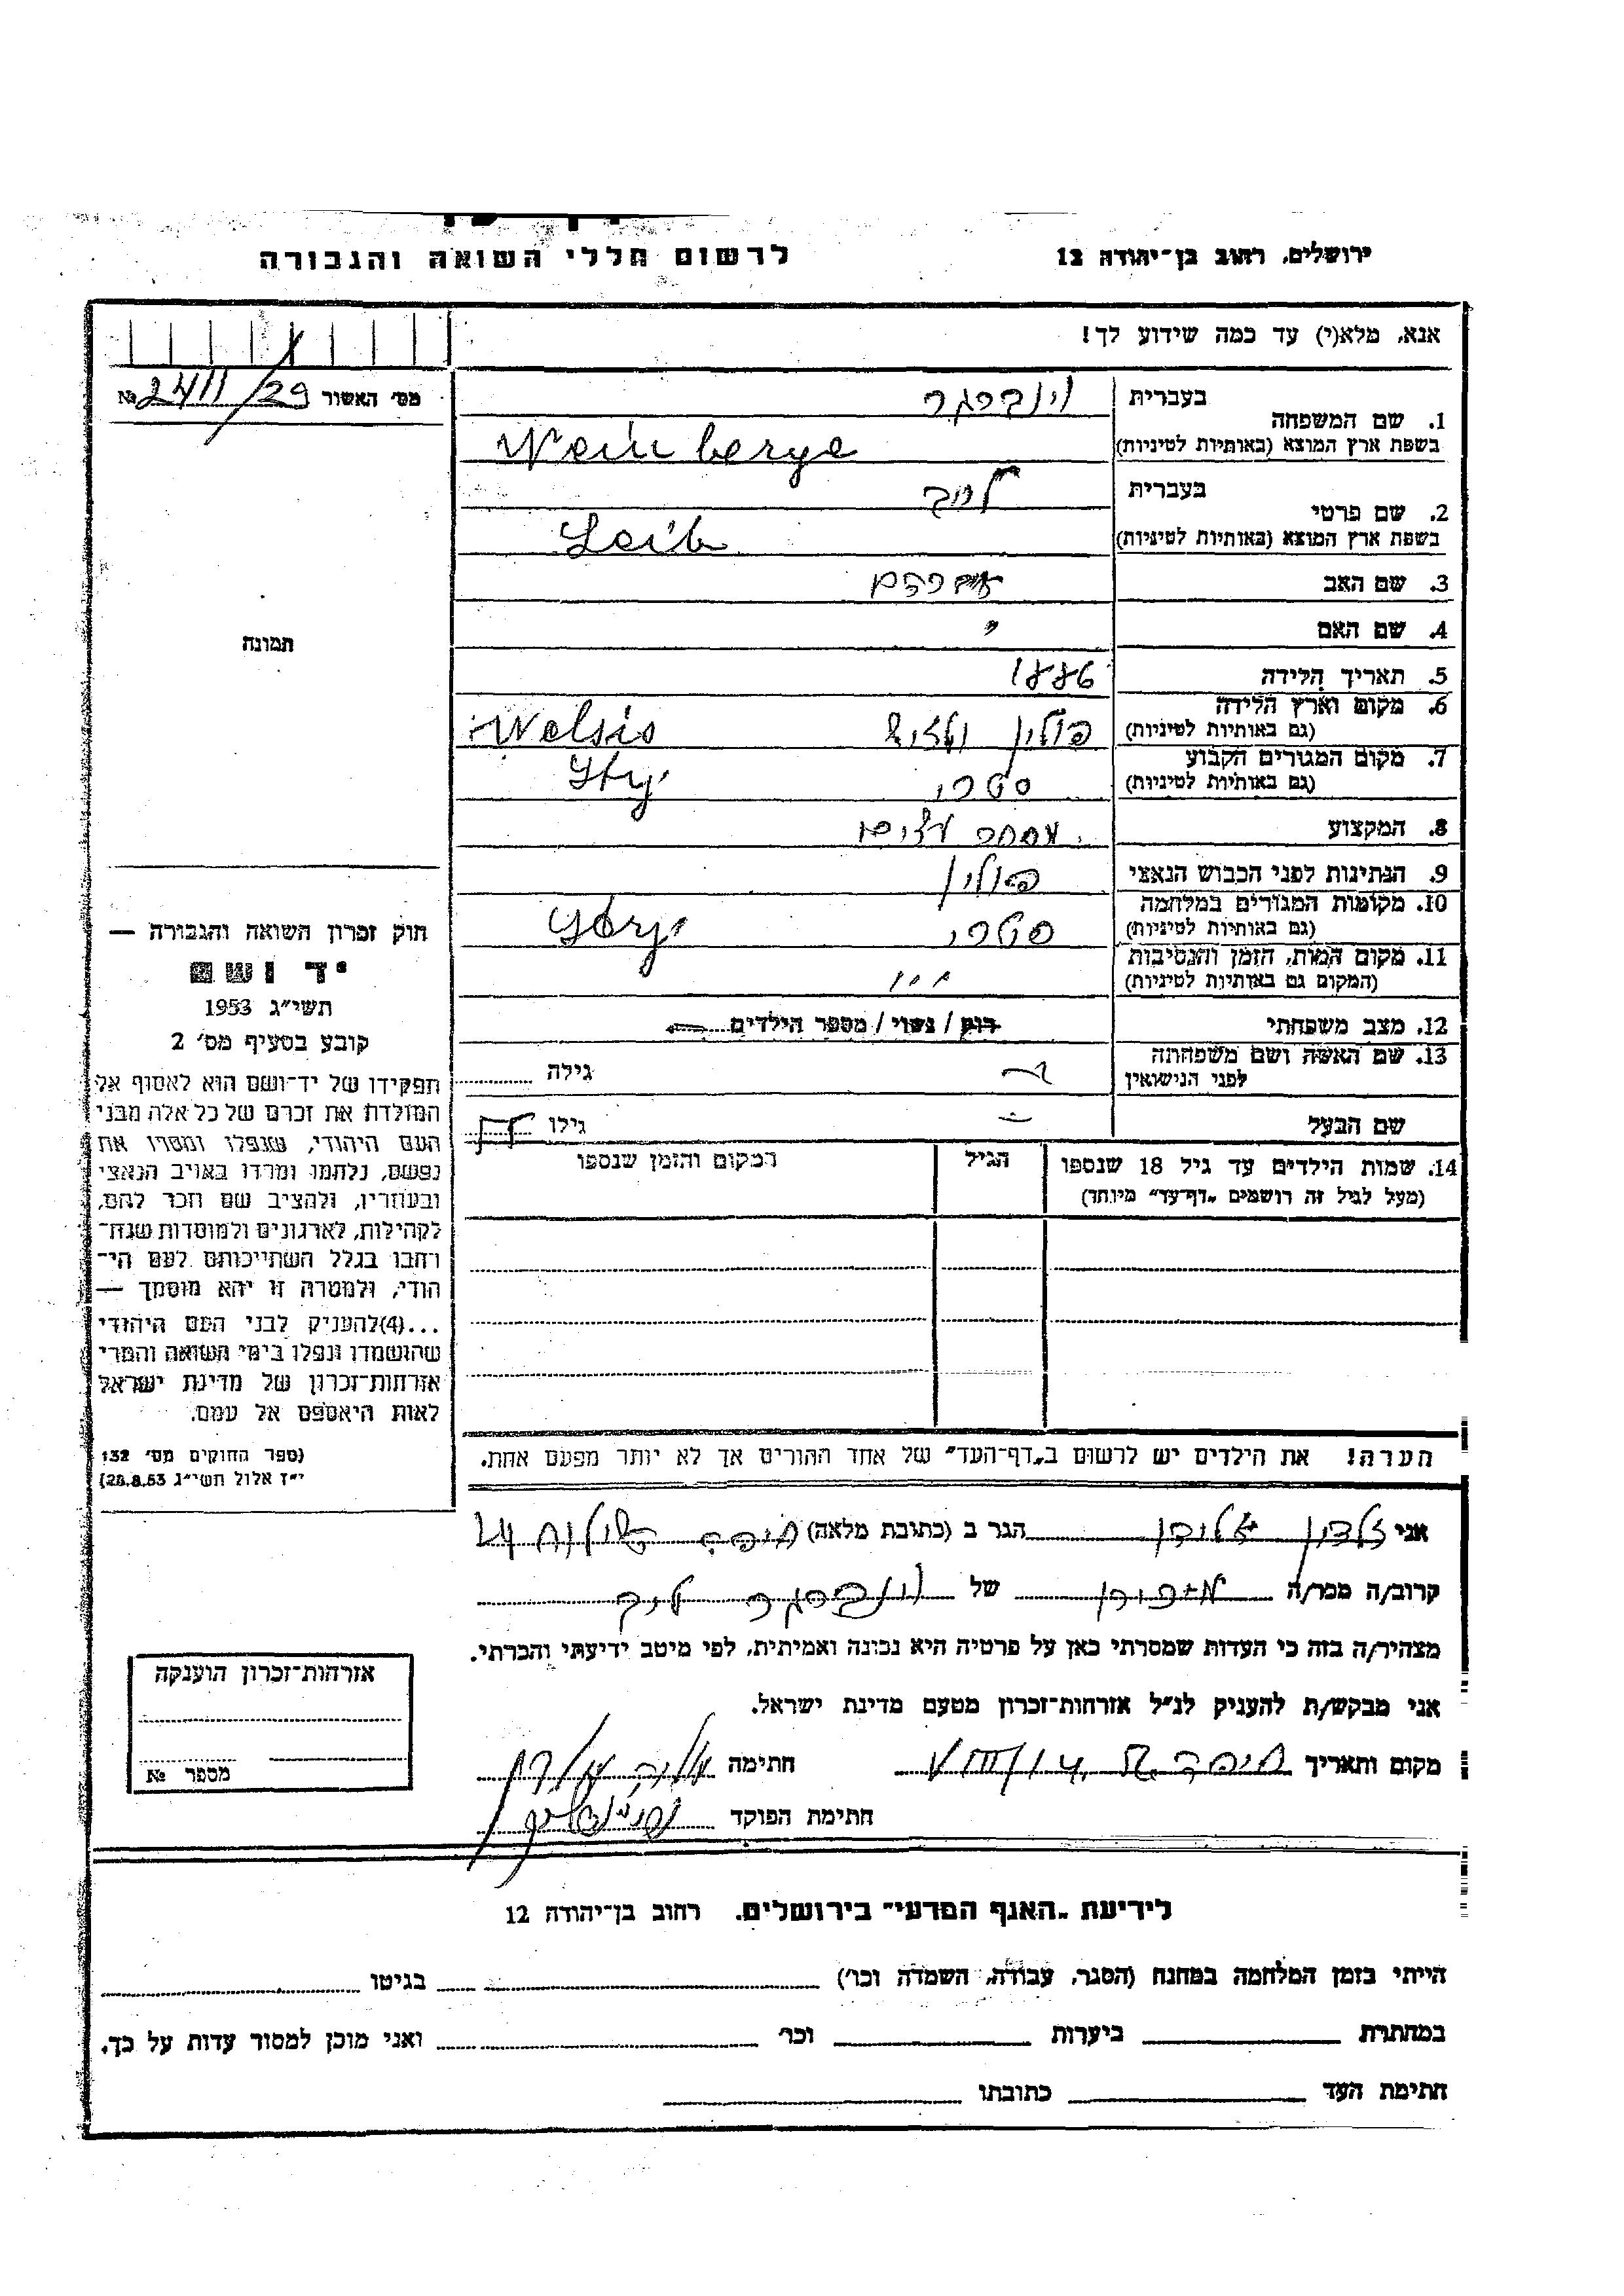 לרשום חללי השואה והגבורה
ירושלים, רחוב בן־יהודה 12
אנא, מלא(י) עד כמה שידוע לך!
מס׳ האשור 2411/29 №
1. שם המשפחה
בעברית וינברגר
בשפת ארץ המוצא (באותיות לטיניות) Weinberge
2. שם פרטי
בעברית ליב
בשפת ארץ המוצא (באותיות לטיניות) Leib
3. שם האב אברהם
4. שם האם
5. תאריך הלידה 1886
6. מקום וארץ הלידה
(גם באותיות לטיניות) פולין Welsis
7. מקום המגורים הקבוע
(גם באותיות לטיניות) סטרי Stry
8. המקצוע מסחר עצים
9. הנתינות לפני הכבוש הנאצי פולין
10. מקומות המגורים במלחמה
(גם באותיות לטיניות) סטרי Stry
11. מקום המות, הזמן והנסיבות
(המקום גם באותיות לטיניות)
12. מצב משפחתי רוק / נשוי / מספר הילדים
13. שם האשה ושם משפחתה
לפני הנישואין
גילה
שם הבעל
גילו
14. שמות הילדים עד גיל 18 שנספו
(מעל לגיל זה רושמים „דף־עד״ מיוחד)
הגיל
המקום והזמן שנספו
הערה! את הילדים יש לרשום ב„דף־העד״ של אחד ההורים אך לא יותר מפעם אחת.
תמונה
חוק זכרון השואה והגבורה —
יד ושם
תשי״ג 1953
קובע בסעיף מס׳ 2
תפקידו של יד־ושם הוא לאסוף אל
המולדת את זכרם של כל אלה מבני
העם היהודי, שנפלו ומסרו את
נפשם, נלחמו ומרדו באויב הנאצי
ובעוזריו, ולהציב שם וזכר להם,
לקהילות, לארגונים ולמוסדות שנח־
רבו בגלל השתייכותם לעם הי־
הודי, ולמטרה זו יהא מוסמך —
...(4)להעניק לבני העם היהודי
שהושמדו ונפלו בימי השואה והמרי
אזרחות־זכרון של מדינת ישראל
לאות היאספם אל עמם.
(ספר החוקים מס׳ 132
י״ז אלול תשי״ג 28.8.53)
אני הגר ב (כתובת מלאה) חיפה
קרוב/ה מכר/ה של וינברגר ליב
מצהיר/ה בזה כי העדות שמסרתי כאן על פרטיה היא נכונה ואמיתית, לפי מיטב ידיעתי והכרתי.
אני מבקש/ת להעניק לנ״ל אזרחות־זכרון מטעם מדינת ישראל.
מקום ותאריך חיפה חתימה
חתימת הפוקד
אזרחות־זכרון הוענקה
מספר №
לידיעת „האגף המדעי״ בירושלים. רחוב בן־יהודה 12
הייתי בזמן המלחמה במחנה (הסגר, עבודה, השמדה וכו׳) בגיטו
במחתרת ביערות וכו׳ ואני מוכן למסור עדות על כך.
חתימת העד כתובתו